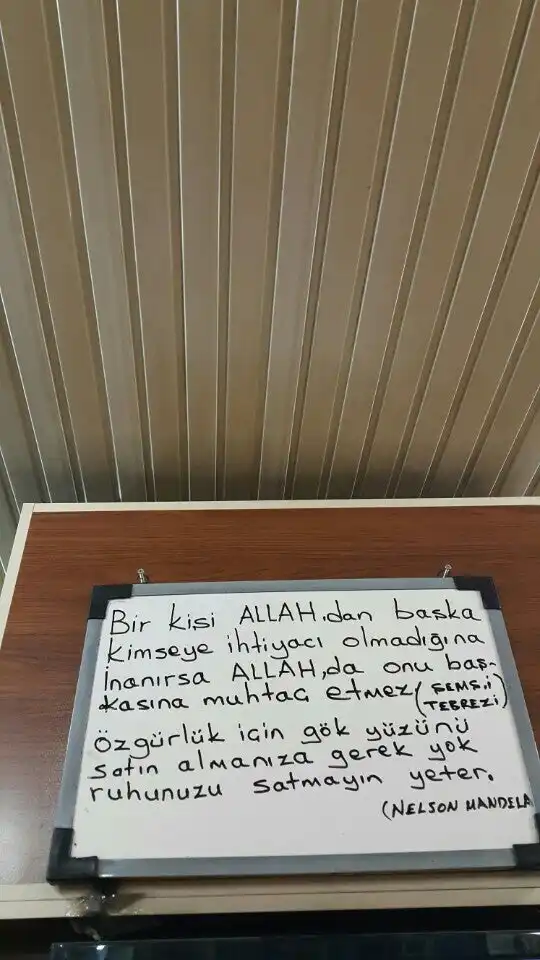 Bir kişi ALLAH.dan başka
kimseye ihtiyacı olmadığına
İnanırsa ALLAH,da onu baş-
kasına muhtaç etmez (ŞEMS.İ
TEBREZİ)
özgürlük için gök yüzünü
satın almanıza gerek yok
ruhunuzu satmayın yeter.
(NELSON MANDELA